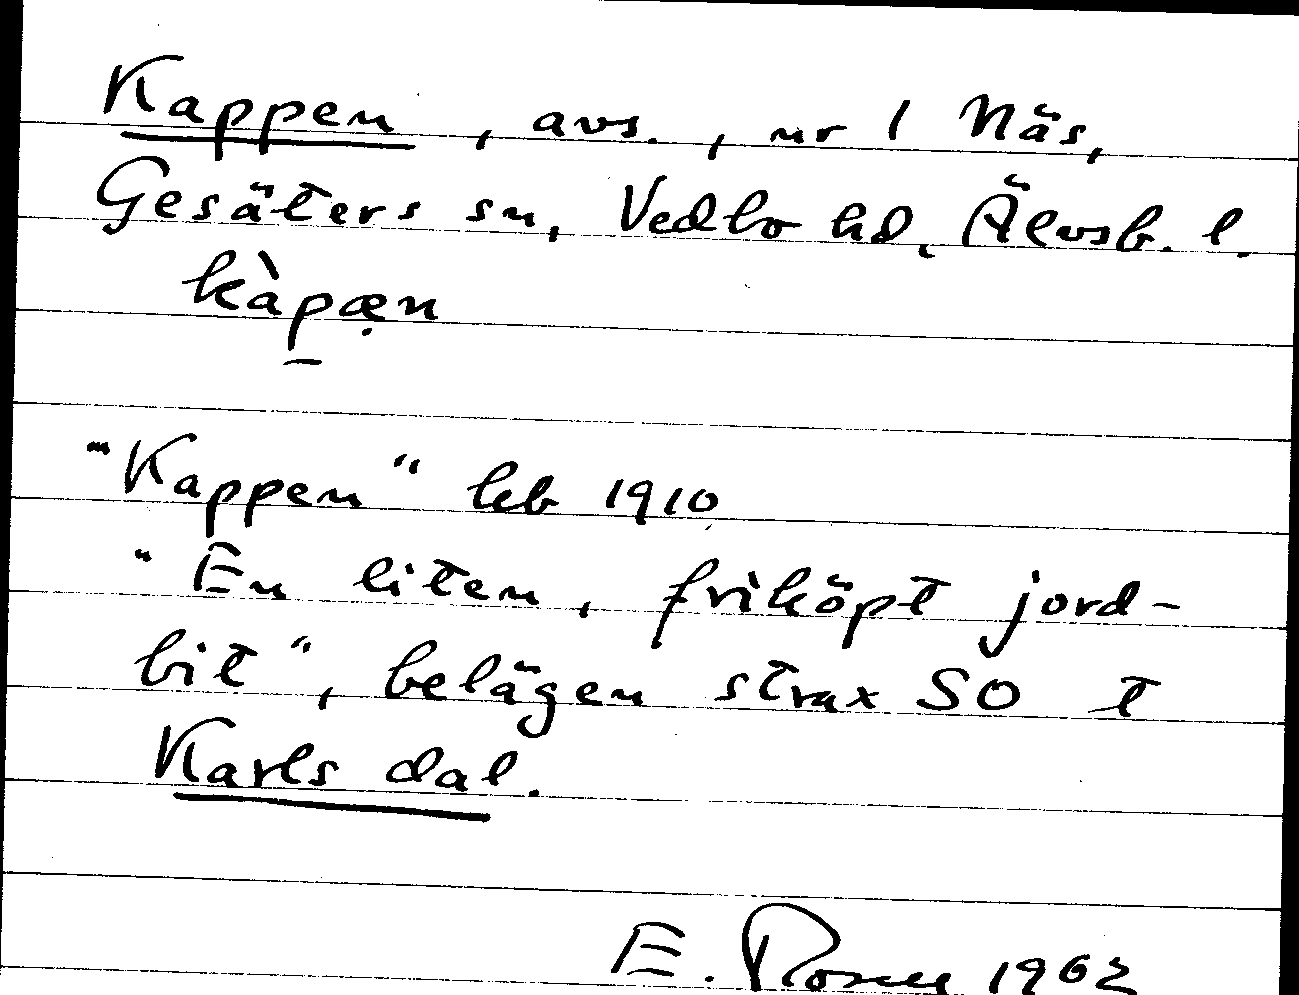 Kappen, avs., nr 1 Näs,
Gesäters sn, Vedbo hd, Älvsb. l.
kàpæ̣n
"Kappen" leb 1910
"En liten, friköpt jord-
bit", belägen strax SO t
Karlsdal.
E. 1962